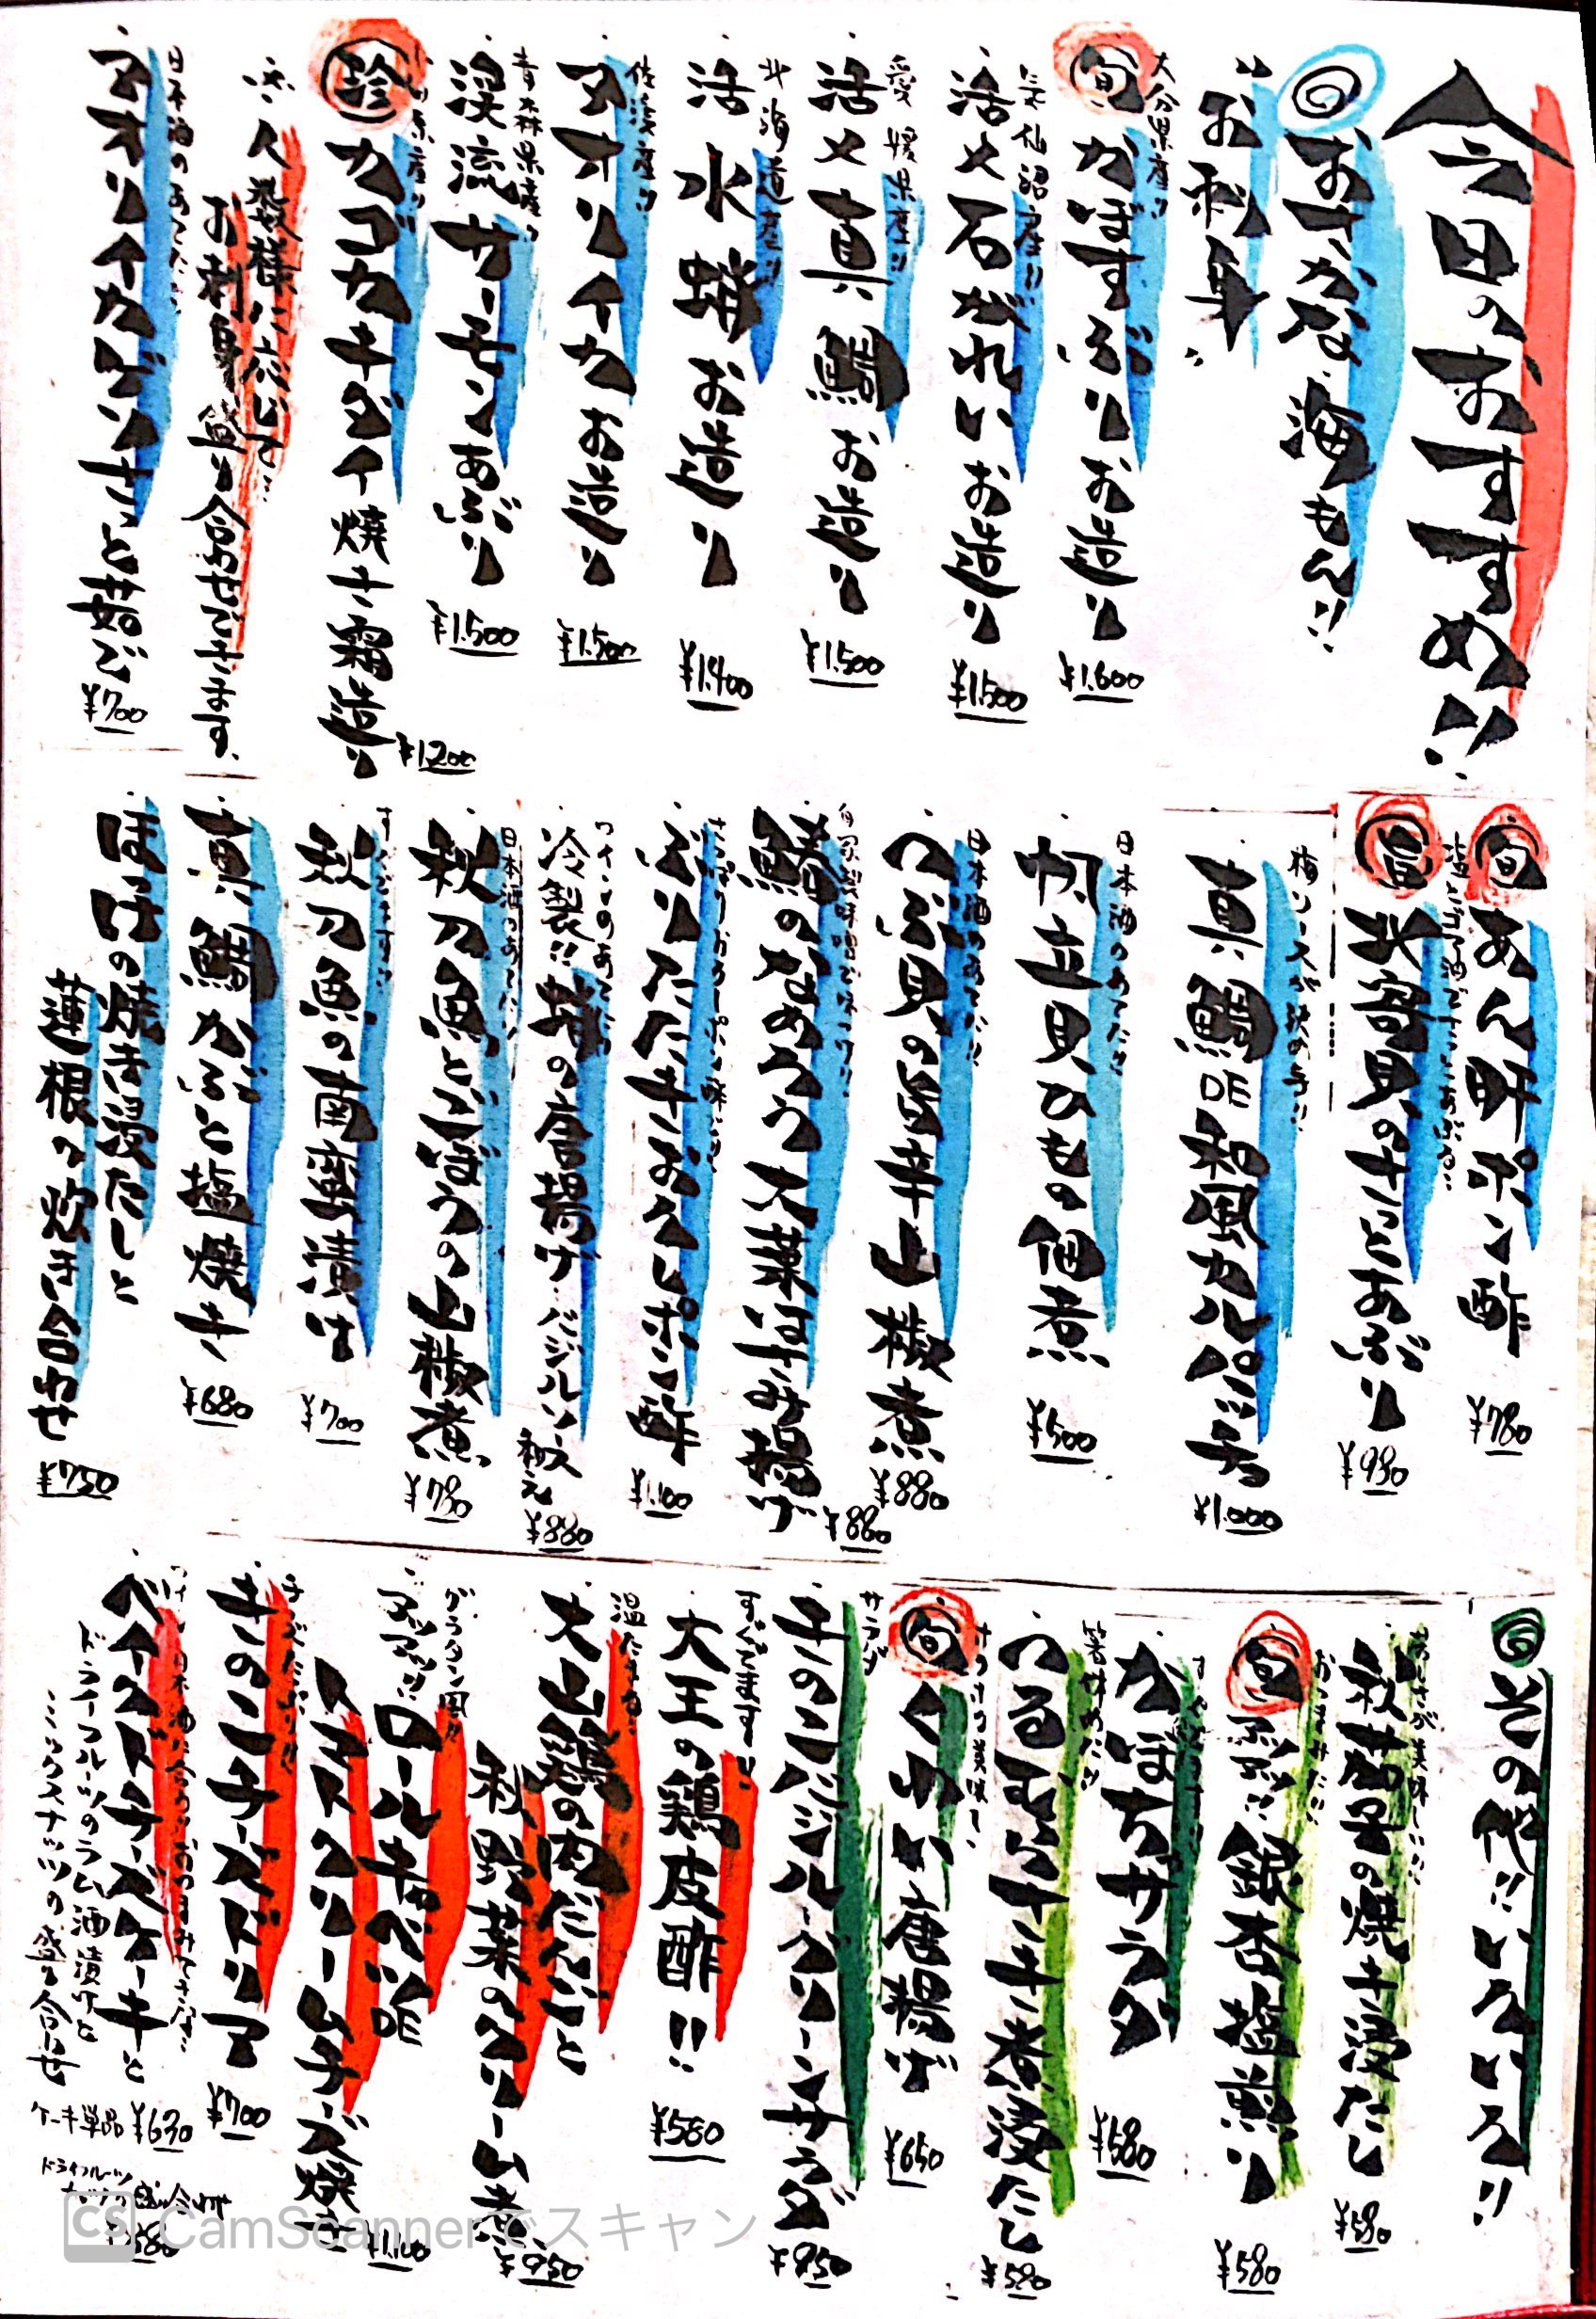 今日のおすすめ!!
◎おさかな、海もん!!
お刺身
大分県産!!
旬 かぼすぶりお造り ¥1.600
活〆石がれいお造り ¥1.500
愛媛県産!!
活〆真鯛お造り ¥1.500
北海道産!!
活水蛸お造り ¥1.400
アオリイカお造り ¥1.500
青森県産!!
渓流サーモンあぶり ¥1.500
珍 カゴカキダイ焼き霜造り ¥1200
人数様に応じて
お刺身盛り合わせできます。
日本酒のあてに
アオリイカげそさっと茹で ¥700
旬 あん肝ポン酢 ¥780
北寄貝のさっとあぶり ¥980
真鯛の和風カルパッチョ ¥1.000
日本酒のあてに!!
帆立貝ひもの佃煮 ¥500
日本酒のあてに!!
つぶ貝の旨辛山椒煮 ¥880
鯵のなめろう大葉はさみ揚げ ¥880
ぶりたたきおろしポン酢 ¥1.100
冷製!!蛸の唐揚げ バジルソース和え ¥880
日本酒のあてに!!
秋刀魚とごぼうの山椒煮 ¥780
秋刀魚の菌麹漬け ¥700
真鯛かぶと塩焼き ¥680
ほっけの焼き浸たしと
蓮根の炊き合わせ ¥750
◎その他!!いろいろ!!
秋茄子の焼き浸たし ¥580
旬 銀杏塩煎り ¥580
かぼちゃサラダ ¥580
つるむらさき煮浸たし ¥580
旬 くわい唐揚げ ¥650
サラダ
きのこバジルクリーンサラダ ¥850
すぐでます!!
大王の鶏皮酢!! ¥580
温たまる
大山鶏の肉だんごと
秋野菜のクリーム煮 ¥950
グラタン風!!
アツアツ!!ロールキャベツの
トマトクリームチーズ焼き ¥1.100
きのこチーズドリア ¥700
ベイクドチーズケーキと
ドライフルーツのラム酒漬けと
ミックスナッツの盛り合わせ
ケーキ単品 ¥630
ドライフルーツ
ナッツ盛り合わせ
¥580
CS CamScannerでスキャン